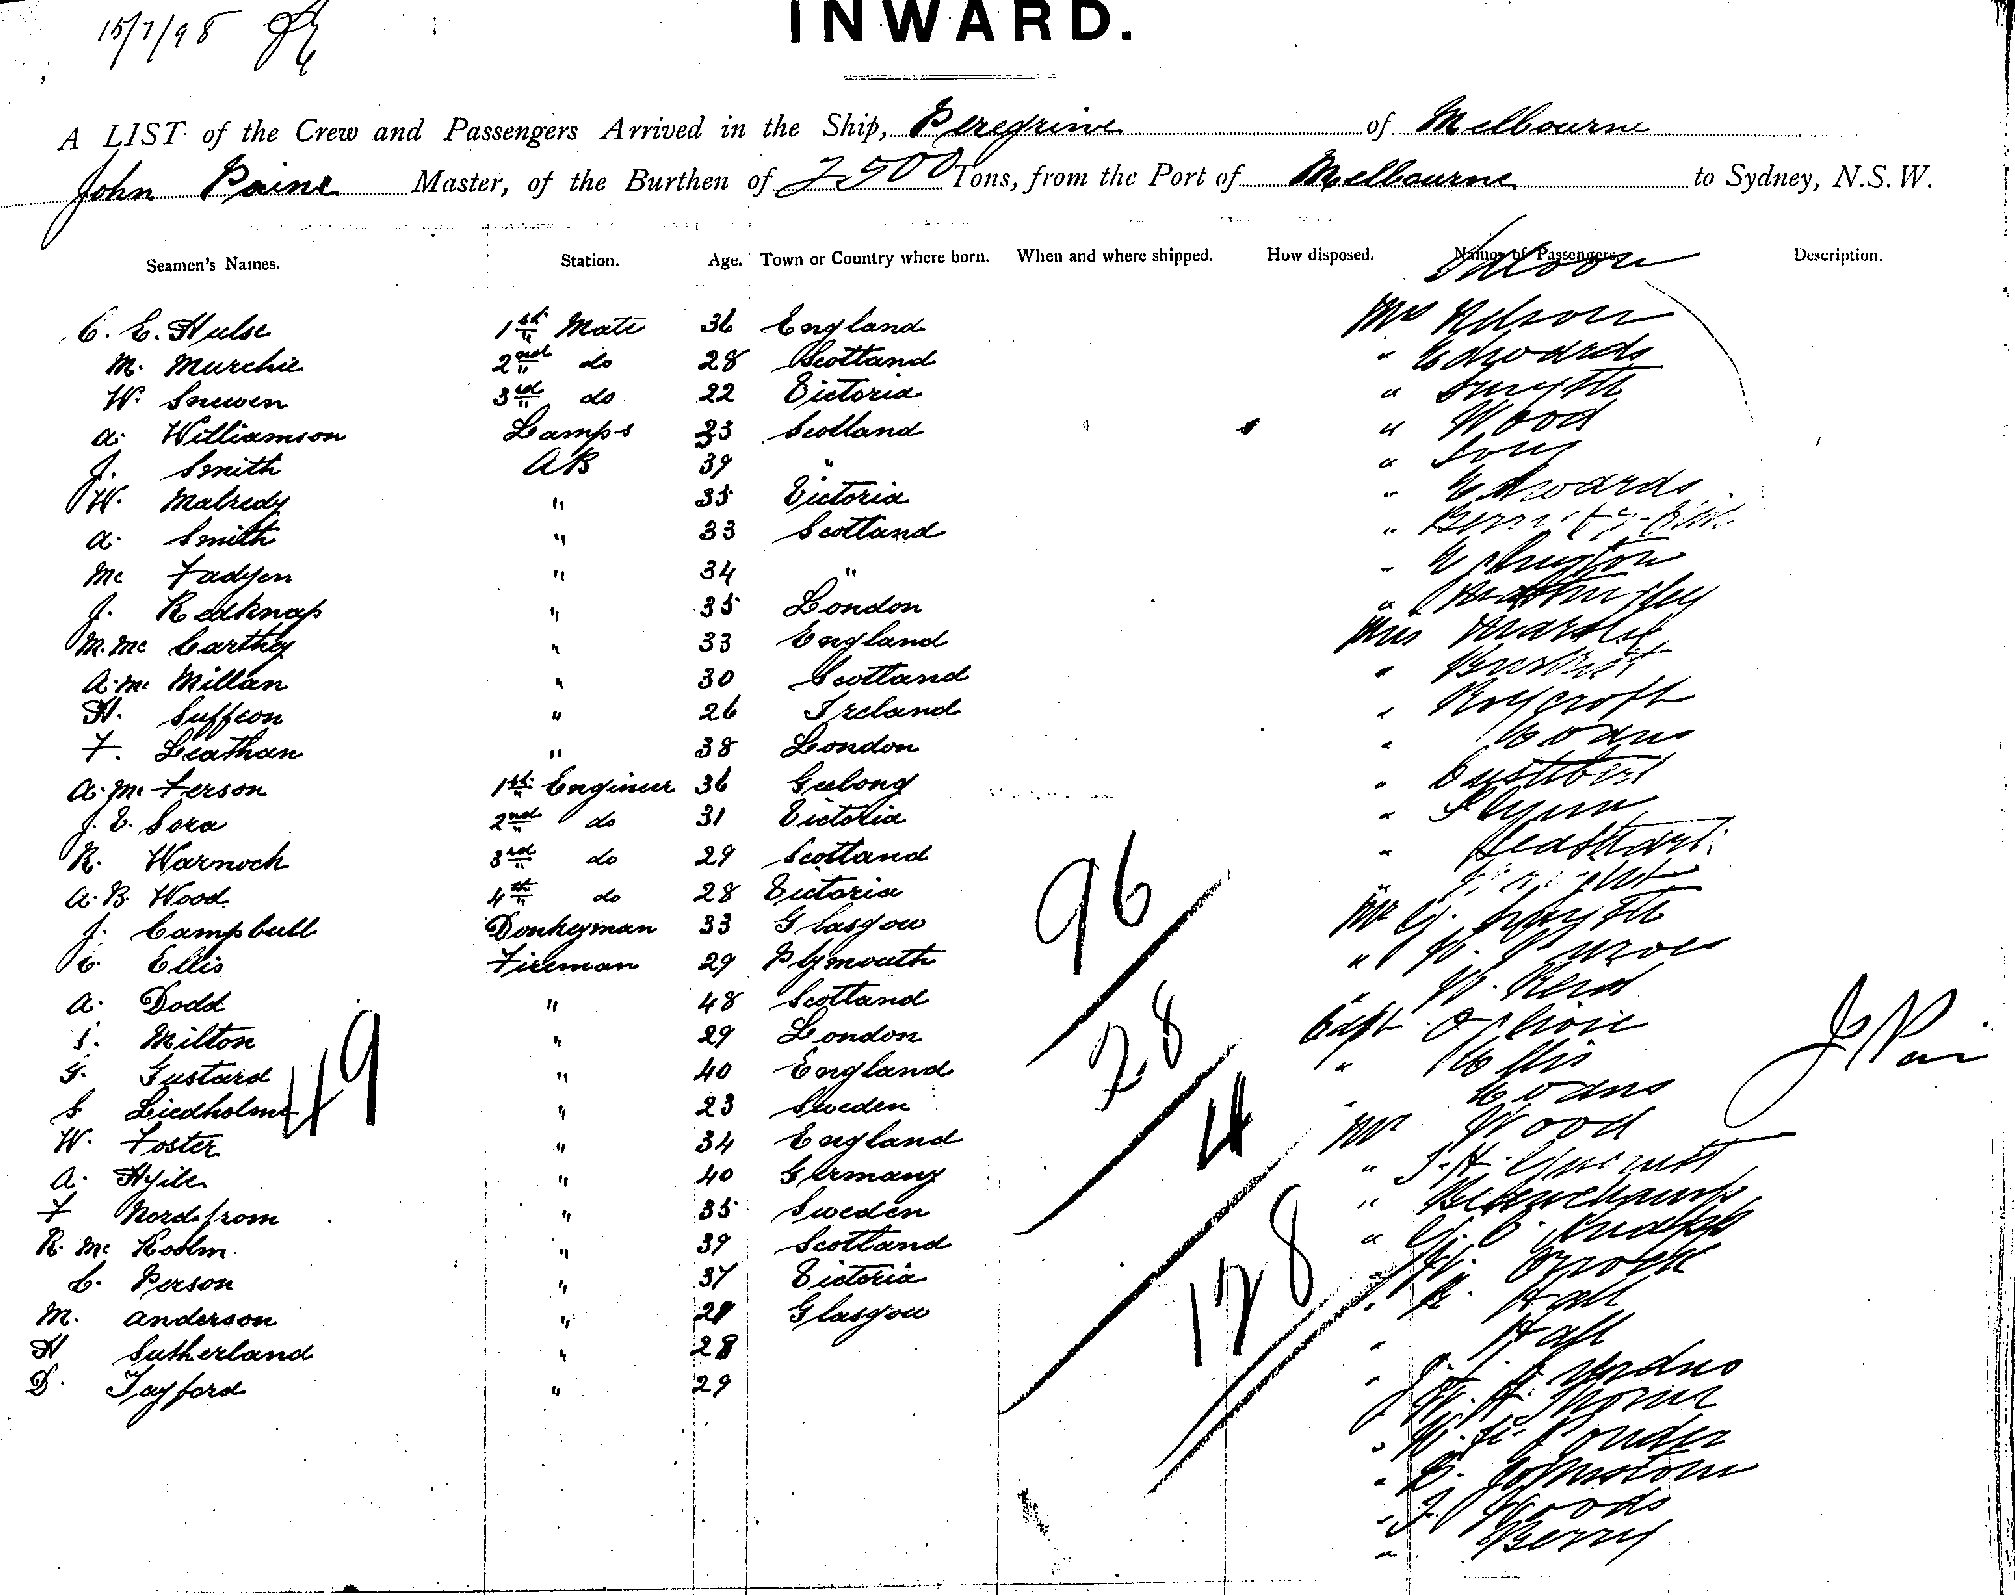 15/7/98
INWARD.
A LIST of the Crew and Passengers Arrived in the Ship, Peregrine of Melbourne
John Paine Master, of the Burthen of 2500 Tons, from the Port of Melbourne to Sydney, N.S.W.
Seamen's Names. Station. Age. Town or Country where born. When and where shipped. How disposed. Names of Passengers. Description.
Saloon
C. E. Hulse 1st Mate 36 England Mrs Nelson
M. Murchie 2nd do 28 Scotland " Edwards
W. Snewen 3rd do 22 Victoria " Smyth
A. Williamson Lamps 23 Scotland " Wood
J. Smith AB 39 " " Long
W. Malredy " 35 Victoria " Edwards
A. Smith " 33 Scotland "
Mc Fadyen " 34 " "
J. Redknap " 35 London "
M. Mc Carthy " 33 England Miss
A. Mc Millan " 30 Scotland "
H. Suffeon " 26 Ireland " Roycroft
F. Leathan " 38 London " Evans
A. Mc Ferson 1st Engineer 36 Geelong "
J. E. Sora 2nd do 31 Victoria " Flynn
R. Warnock 3rd do 29 Scotland "
A. B. Wood 4th do 28 Victoria "
J. Campbell Donkeyman 33 Glasgow Mr G. Smyth
C. Ellis Fireman 29 Plymouth " W.
A. Dodd " 48 Scotland " W. Reid
S. Milton " 29 London Capt
G. Gustard " 40 England " Ellis
S. Liedholme " 23 Sweden " Evans
W. Foster " 34 England Mr Wood
A. Hyile " 40 Germany "
F. Nordstrom " 35 Sweden " Beauchamp
R. Mc Kolm " 39 Scotland " G. C. Knapp
C. Person " 37 Victoria "
M. Anderson " 21 Glasgow " R. Hall
H Sutherland " 28 " Hall
D. Tayford " 29 "
" W. H. Thorne
"
" B. Johnstone
" J. Woods
" Berry
49
96
28
4
128
J. Pain